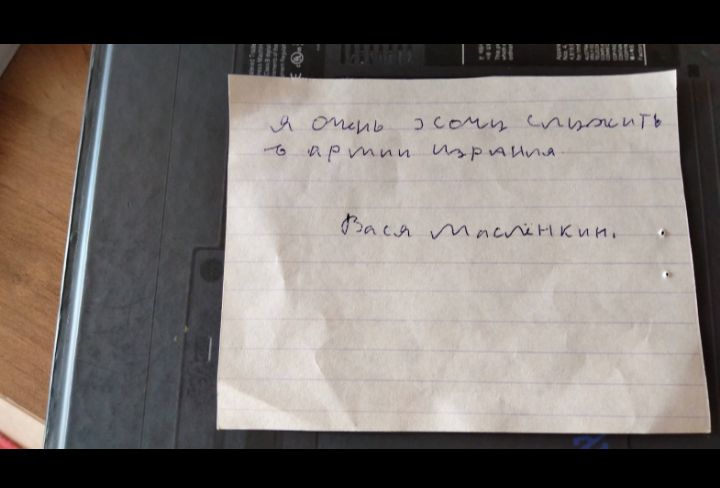 Я очень хочу служить
в армии Израиля.
Вася Маслёнкин.